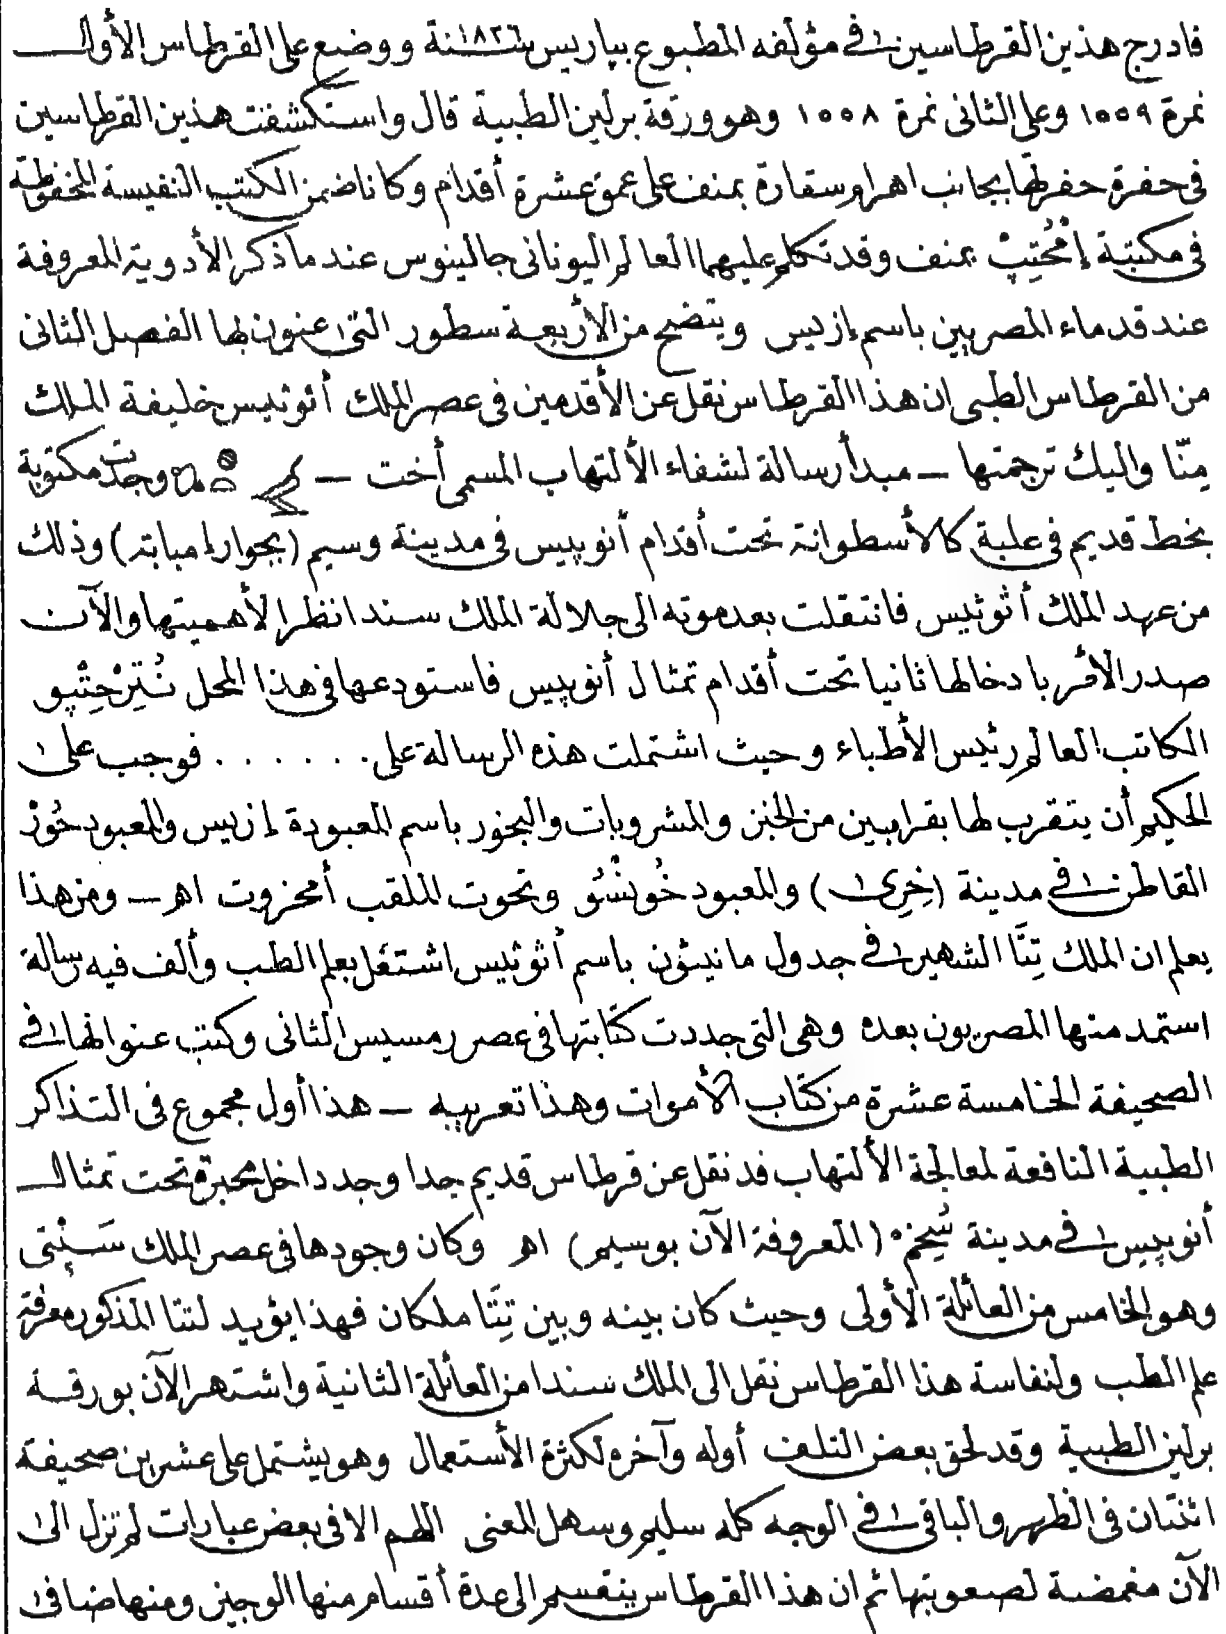 فادرج هذين القرطاسين فى مؤلفه المطبوع بباريس سنة ١٨٢٦ ووضع على القرطاس الأول
نمرة ١٥٥٩ وعلى الثانى نمرة ١٥٥٨ وهو ورقة برلين الطبية قال واستكشفت هذين القرطاسين
فى حفرة حفرتها بجانب اهرام سقارة بمنف على عمق عشرة أقدام وكانا ضمن الكتب النفيسة المحفوظة
فى مكتبة إمْحُتِپْ بمنف وقد تكلم عليهما العالم اليونانى جالينوس عند ما ذكر الأدوية المعروفة
عند قدماء المصريين باسم إزيس ويتضح من الأربعة سطور التى عنون بها الفصل الثانى
من القرطاس الطبى ان هذا القرطاس نقل عن الأقدمين فى عصر الملك أثوثيس خليفة الملك
مِنّا واليك ترجمتها ـ مبدأ رسالة لشفاء الألتهاب المسمى أخت ـ وجدت مكتوبة
بخط قديم فى علبة كالأسطوانة تحت أقدام أنوبيس فى مدينة وسيم (بجوار إمبابة) وذلك
من عهد الملك أثوثيس فانتقلت بعد موته الى جلالة الملك سندا نظرا لأهميتها والآن
صدر الأمر بادخالها ثانيا تحت أقدام تمثال أنوبيس فاستودعها فى هذا المحل نُتِرْحِتْپو
الكاتب العالم رئيس الأطباء وحيث اشتملت هذه الرسالة على . . . . . . فوجب على
الحكيم أن يتقرب لها بقرابين من الخبز والمشروبات والبخور باسم المعبودة إزيس والمعبود حُورْ
القاطن فى مدينة (خِرِى) والمعبود خُونْسُو وتحوت الملقب أمخروت اهـ ـ ومن هذا
يعلم ان الملك تِتَّا الشهير فى جدول مانيثون باسم أثوثيس اشتغل بعلم الطب وألف فيه رسالة
استمد منها المصريون بعده وهى التى جددت كتابتها فى عصر رمسيس الثانى وكتب عنوانها فى
الصحيفة الخامسة عشرة من كتاب الأموات وهذا تعريبه ـ هذا أول مجموع فى التذاكر
الطبية النافعة لمعالجة الألتهاب قد نقل عن قرطاس قديم جدا وجد داخل محبرة تحت تمثال
أنوبيس فى مدينة سُيخِم (المعروفة الآن بوسيم) اهـ وكان وجودها فى عصر الملك سَـپْتى
وهو الخامس من العائلة الأولى وحيث كان بينه وبين تِتَا ملكان فهذا يؤيد لتتا المذكور معرفة
علم الطب ولنفاسة هذا القرطاس نقل الى الملك سندا من العائلة الثانية واشتهر الآن بورقة
برلين الطبية وقد لحق بعض التلف أوله وآخره لكثرة الأستعمال وهو يشتمل على عشرين صحيفة
اثنتان فى الظهر والباقى فى الوجه كله سليم وسهل المعنى اللهم الا فى بعض عبارات لم تزل الى
الآن مغمضة لصعوبتها ثم ان هذا القرطاس ينقسم الى عدة أقسام منها الوجيز ومنها ضافى